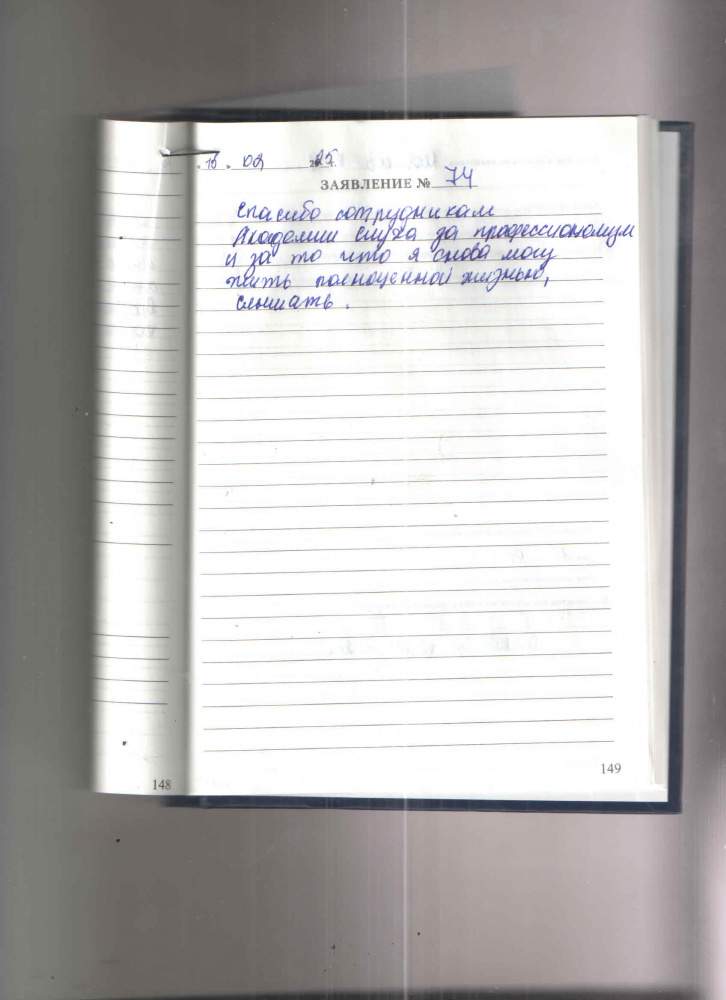 16. 02 25
ЗАЯВЛЕНИЕ № 74
Спасибо сотрудникам
Академии слуха за профессионализм
и за то что я снова могу
жить полноценной жизнью,
слышать.
148
149